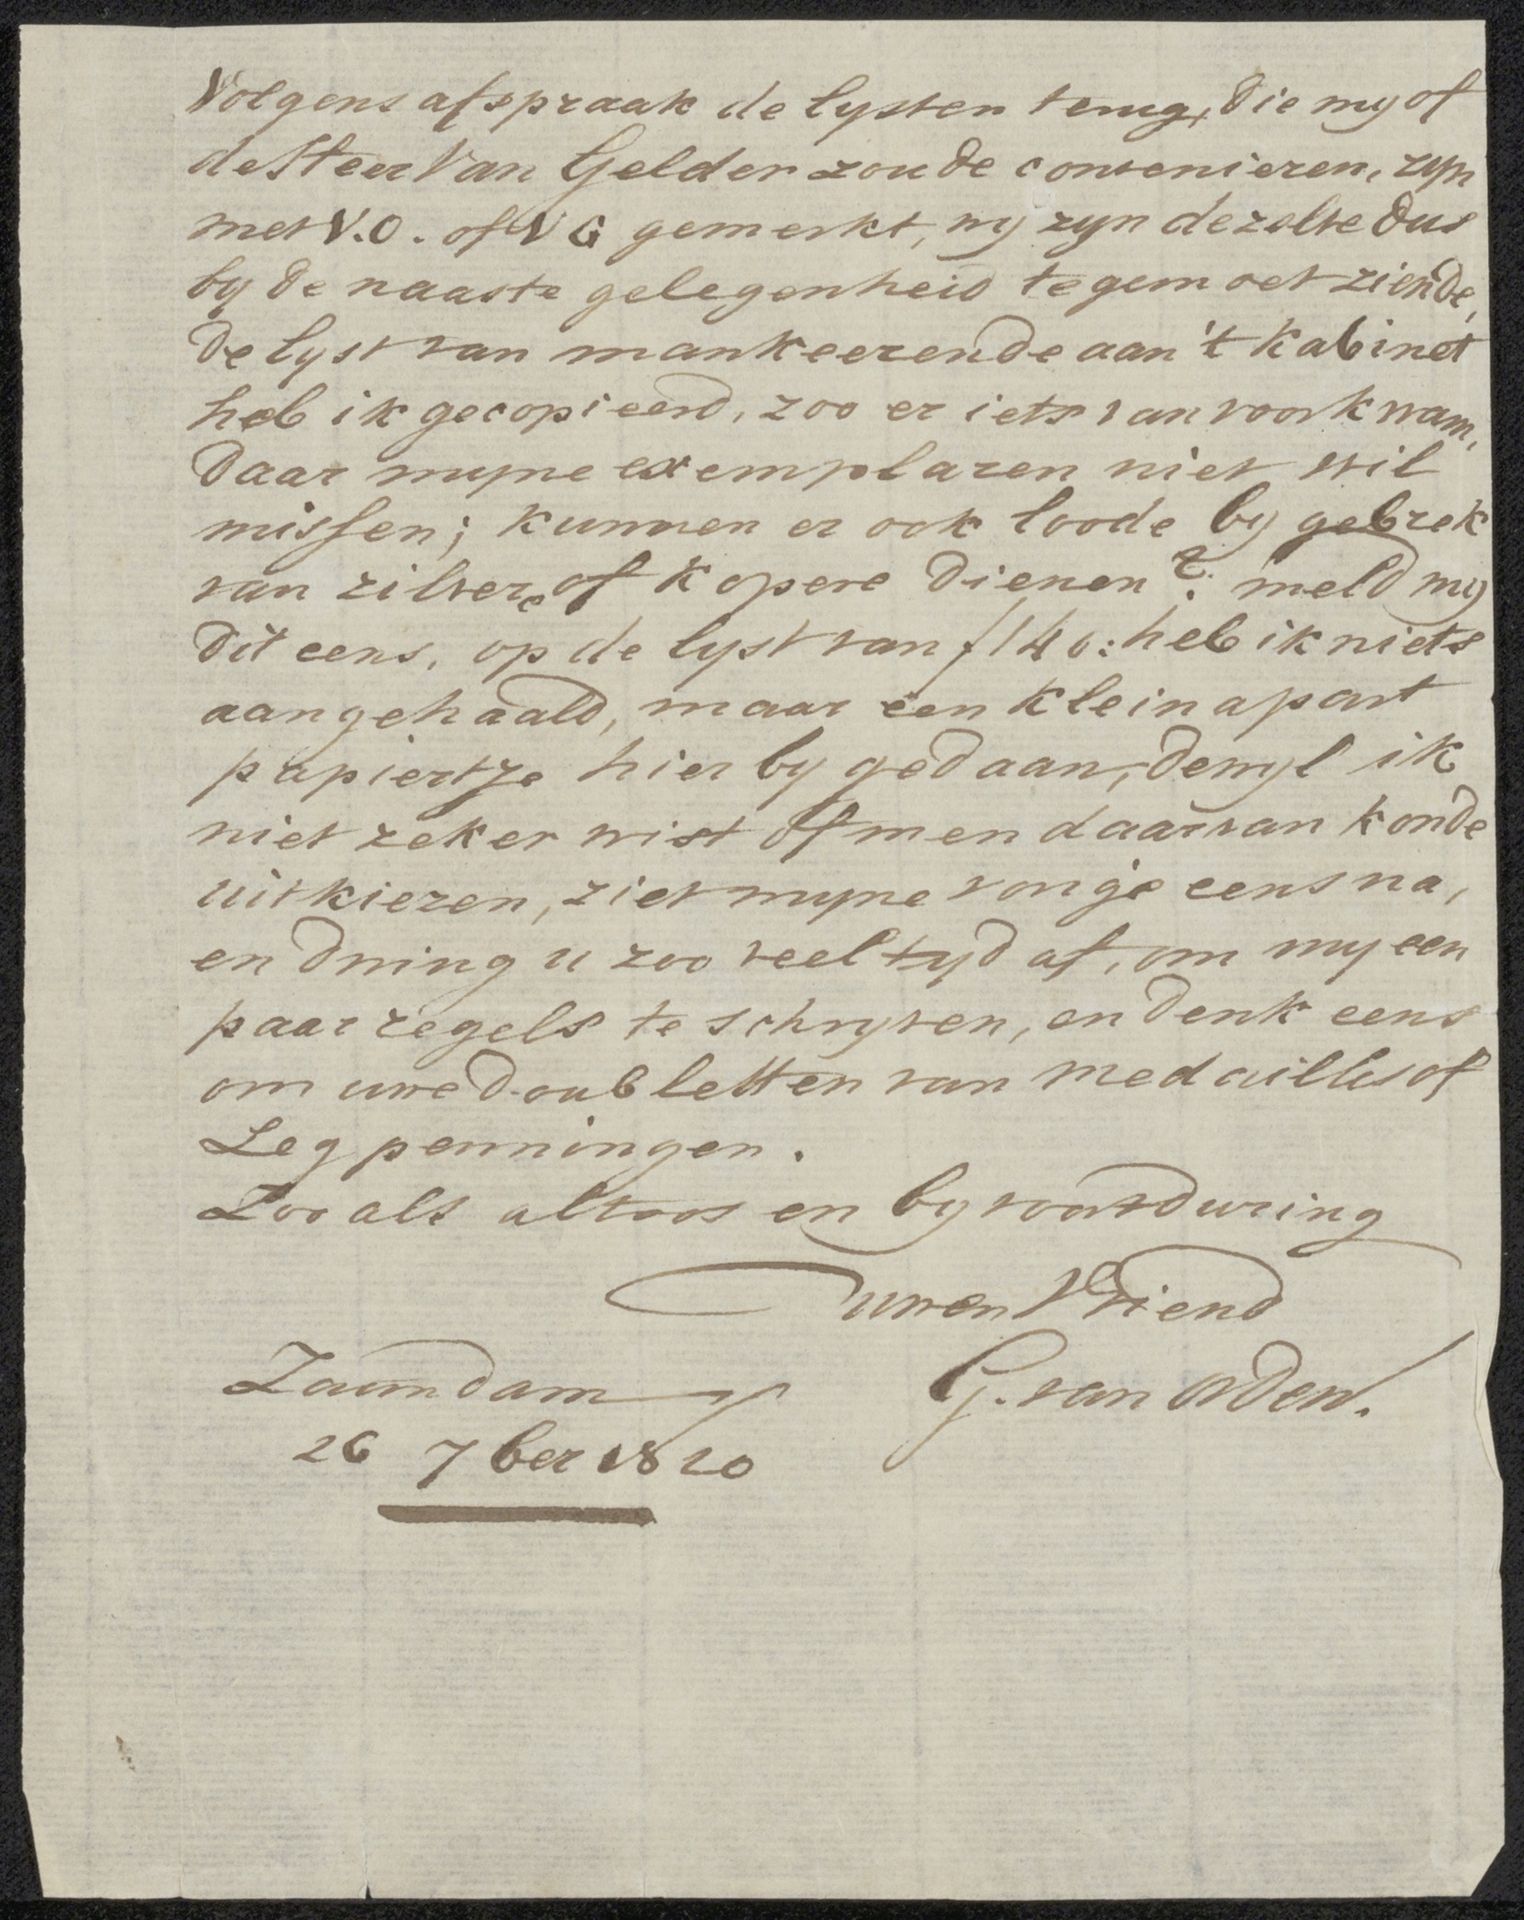 Volgens afspraak de lysten terug, die my of
de Heer Van Gelder zoude convenieren, zyn
met V.O. of VG gemerkt, wy zyn dezelve dus
by de naaste gelegenheid tegemoet ziende,
de lyst van mankeerende aan 't kabinet
heb ik gecopieerd, zoo er iets van voorkwam,
daar myne exemplaren niet wil
missen; kunnen er ook loode by gebrek
van zilvere of kopere dienen? meld my
dit eens, op de lyst van f 140: heb ik niets
aangehaald, maar een klein apart
papiertje hier by gedaan, dewyl ik
niet zeker wist of men daarvan konde
uitkiezen, ziet myne vorige eens na,
en dwing u zoo veel tyd af, om my een
paar regels te schryven, en denk eens
om uwe doubletten van medailles of
Legpenningen.
Zoo als altoos en by voortduring
uwen Vriend
Zaandam G. van Orden.
26 7ber 1820